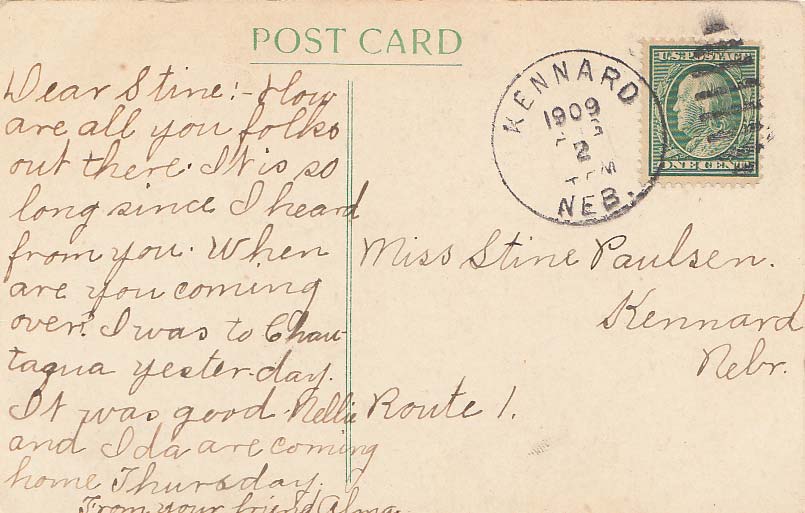 POST CARD
Dear Stine:- How
are all you folks
out there. It is so
long since I heard
from you. When
are you coming
over? I was to Chau-
taqua yester-day.
It was good. Nellie
and Ida are coming
home Thursday.
From your friend Alma.
KENNARD
1909
2
M
NEB.
U.S. POSTAGE
ONE CENT
Miss Stine Paulsen.
Kennard
Nebr.
Route 1.